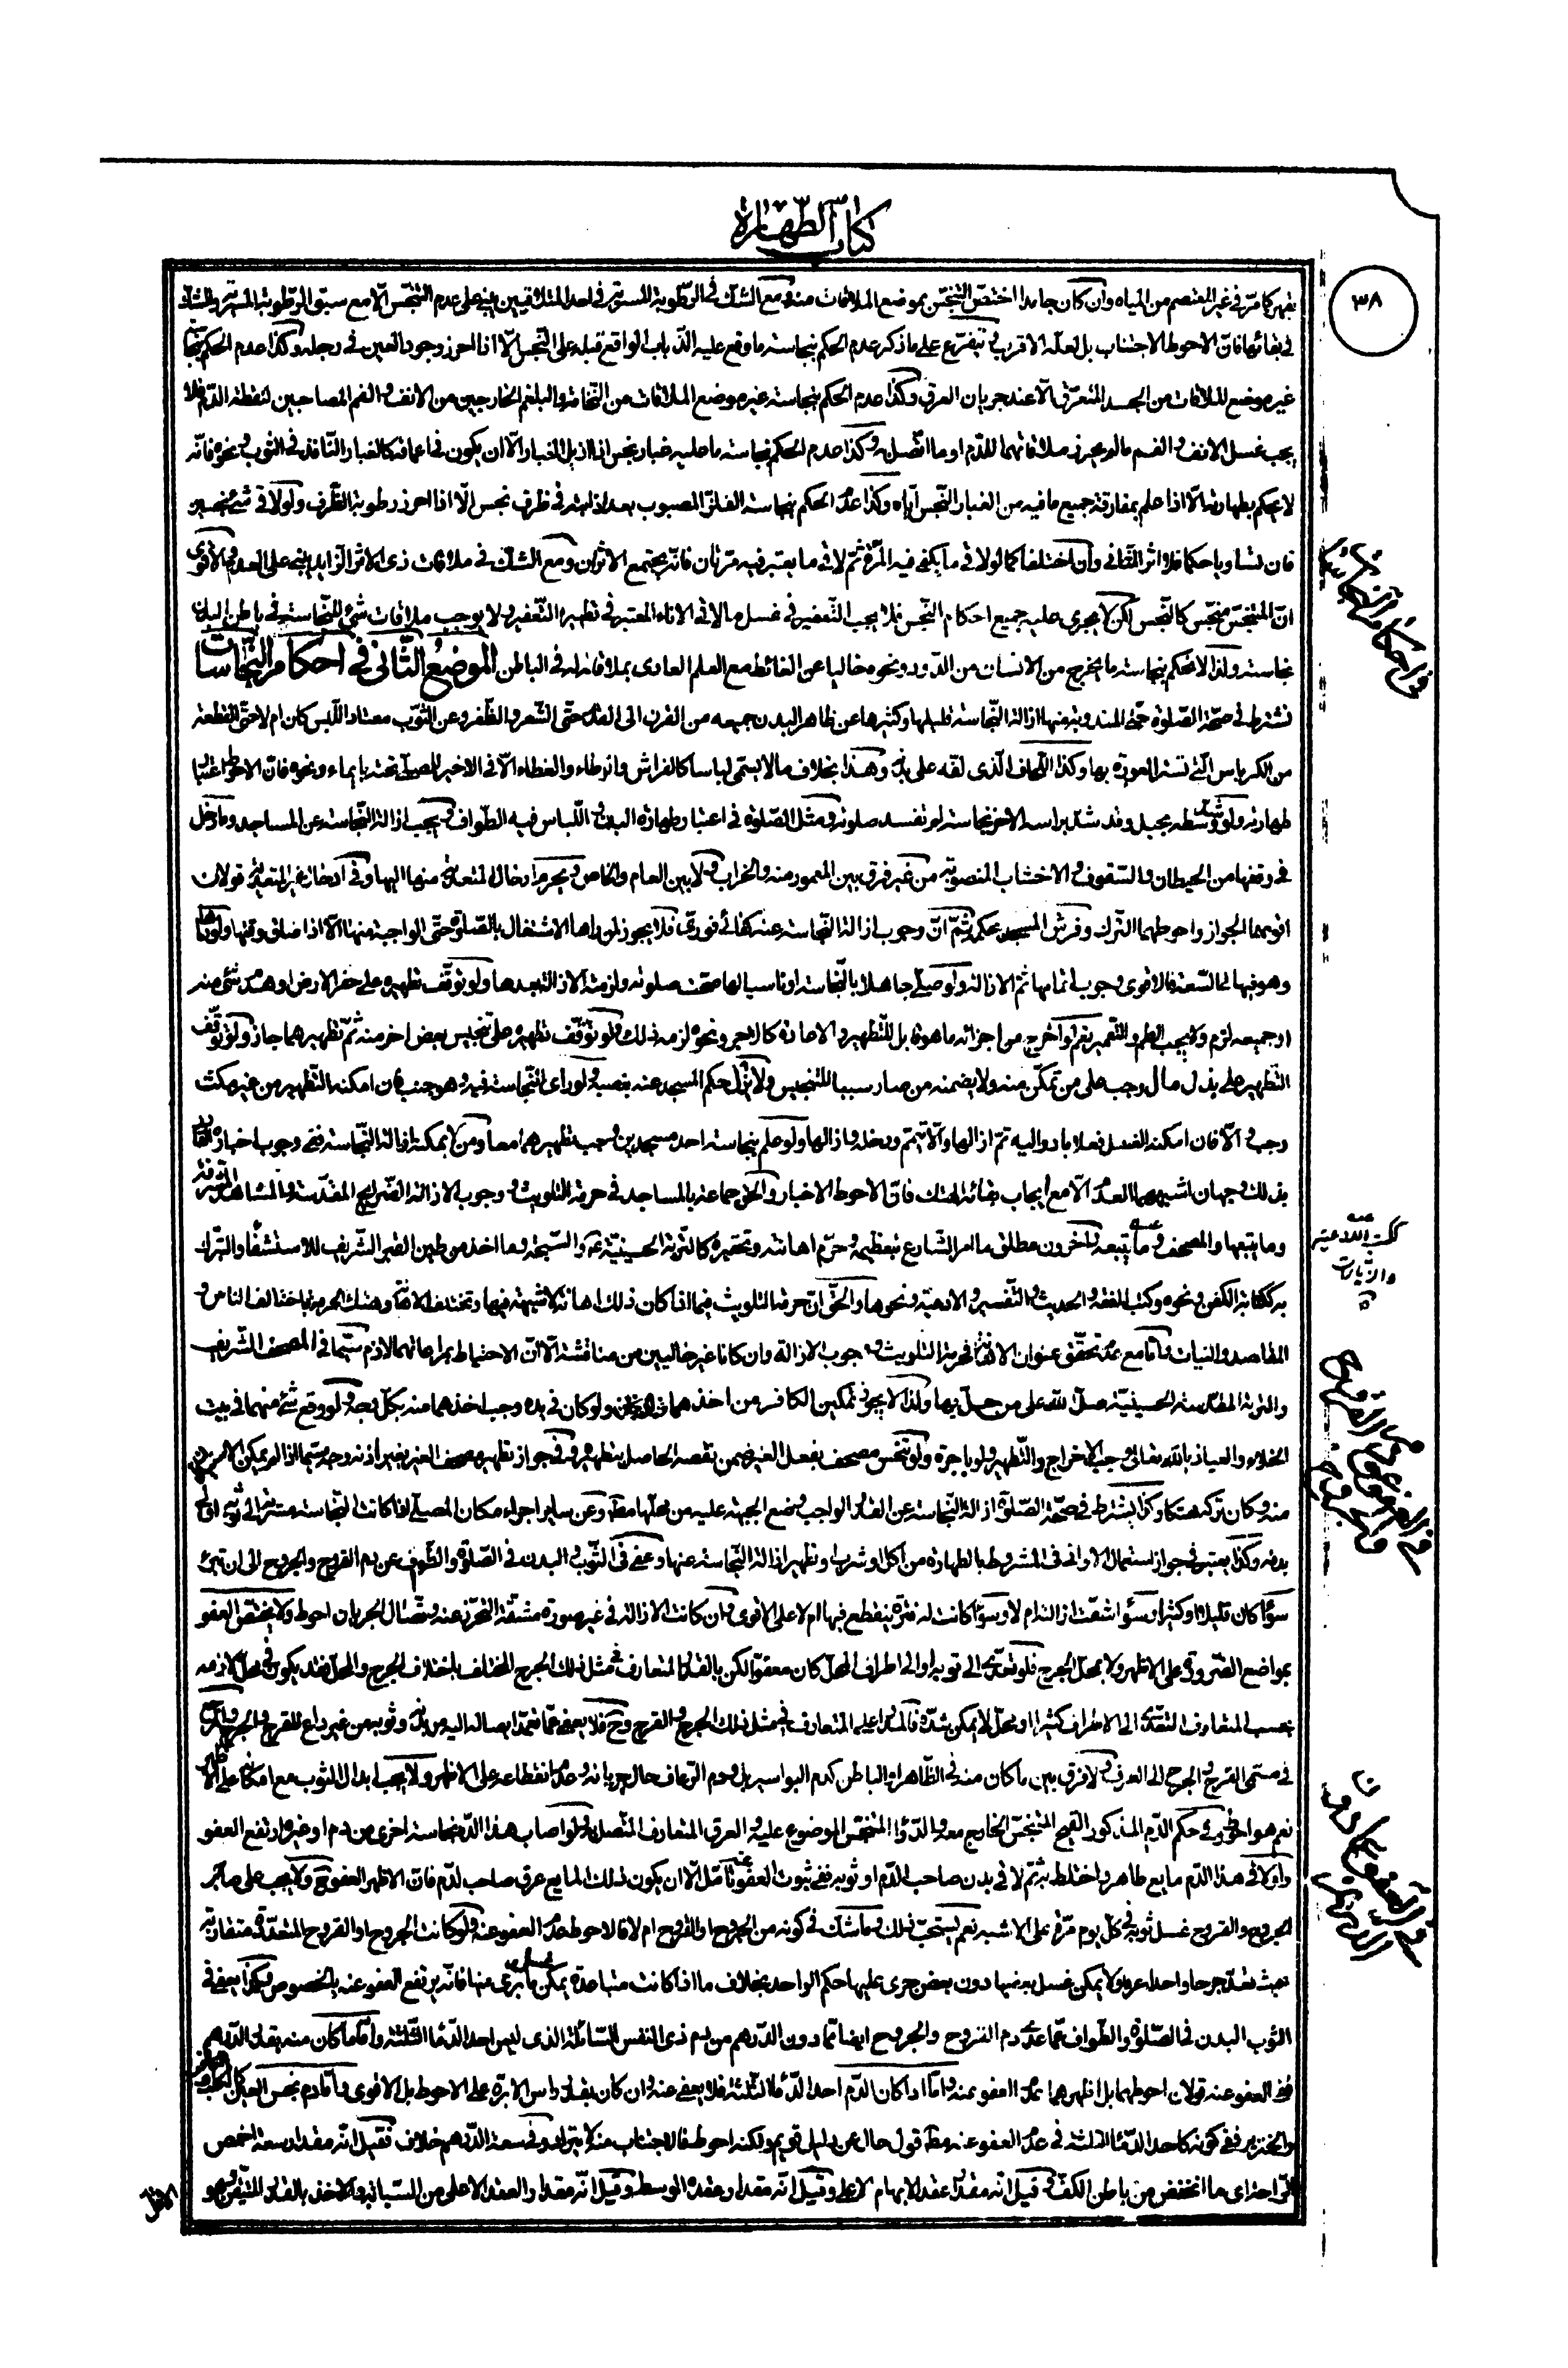 كتاب الطهارة
٣٨
بقهر كما مرّ في غير المعتصم من المياه وان كان جامدا اختصّ التنجّس بموضع الملاقات منه ومع الشك في الرّطوبة المسرية في احد المتلاقيين يبنى على عدم التنجّس الّا مع سبق الرّطوبة المسرية والشك
في بقائها فانّ الاحوط الاجتناب بل لعلّه الاقرب ويتفرّع على ما ذكر عدم الحكم بنجاسة ما وقع عليه الذّباب الواقع قبله على النّجس الّا اذا احرز وجود العين في رجله وكذا عدم الحكم بنجاسة
غير موضع الملاقات من الجسد المتعرّق الّا عند جريان العرق وكذا عدم الحكم بنجاسة غير موضع الملاقات من النّخامة والبلغم الخارجين من الانف والفم المصاحبين لنقطة الدّم فلا
يجب غسل الانف والفم ما لم يحرز ملاقاتهما للدّم او ما اتّصل به وكذا عدم الحكم بنجاسة ما عليه غبار نجس اذا ازيل الغبار الّا ان يكون في اعماقه كالغبار النّافذ في الثوب ونحوه فانّه
لا يحكم بطهارته الّا اذا علم بمفارقة جميع ما فيه من الغبار النّجس ايّاه وكذا عدم الحكم بنجاسة الفلزّ المصبوب بعد اذابته في ظرف نجس الّا اذا احرز رطوبة الظّرف ولو لاقى شئ نجسين
فان تساويا حكما فلا اثر للثّاني وان اختلفا كما لو لاقى ما يكفى فيه المرّة ثمّ لاقى ما يعتبر فيه مرّتان فانّه يجتمع الاثران ومع الشك في ملاقات ذى الاثر الزّايد يبنى على العدم والاقوى
انّ المتنجّس منجّس كالنّجس لكن لا يجرى عليه جميع احكام النّجس فلا يجب التّعفير في غسل ما لاقى الاناء المعتبر في تطهيره التّعفير ولا يوجب ملاقات شئ للنّجاسة في باطن البدن
نجاسته ولذا لا يحكم بنجاسة ما يخرج من الانسان من الدّود ونحوه خاليا عن الغائط مع العلم العادى بملاقاته له في الباطن الموضع الثّاني في احكام النّجاسات
تشترط في صحّة الصّلوة حتّى المندوبة منها ازالة النّجاسة قليلها وكثيرها عن ظاهر البدن جميعه من القرن الى القدم حتّى الشّعر والظّفر وعن الثوب معتاد اللّبس كان ام لا حتّى القطعة
من الكرباس الّتى تستر العورة بها وكذا اللّحاف الّذى لفّه على بدنه وهذا بخلاف ما لا يسمّى لباسا كالفراش والوطاء والغطاء الّا في الاخير للمصلّى تحته بايماء ونحوه فانّ الاحوط اعتبار
طهارته ولو شدّ وسطه بحبل وقد شدّ براسه الاخر نجاسة لم تفسد صلوته ومثل الصّلوة في اعتبار طهارة البدن واللّباس فيه الطّواف ويجب ازالة النّجاسة عن المساجد وما دخل
في وقفها من الحيطان والسّقوف والاخشاب المنصوبة من غير فرق بين المعمور منه والخراب ولا بين العام والخاص ويحرم ادخال المتعدّى منها اليها وفي ادخال غير المتعدّية قولان
اقويهما الجواز واحوطهما التّرك وفرش المسجد بحكمه ثمّ انّ وجوب ازالة النّجاسة عنه كفائى فورىّ فلا يجوز لمن راها الاشتغال بالصّلوة حتّى الواجبة منها الّا اذا ضاق وقتها ولو راها
وهو فيها في السّعة فالاقوى وجوب اتمامها ثمّ الازالة ولو صلّى جاهلا بالنّجاسة او ناسيا لها صحّت صلوته ولزمته الازالة بعدها ولو توقّف تطهيره على حفر الارض او هدم شئ منه
او جميعه لزم ولا يجب الطّم والتّعمير نعم لو اخرج من اجزائه ما هو قابل للتّطهير والاعادة كالاجر ونحوه لزمه ذلك ولو توقّف تطهيره على تنجيس بعض اخر منه ثمّ تطهيرهما جاز ولو توقّف
التّطهير على بذل مال وجب على من تمكّن منه ولا يضمنه من صار سببا للتنجيس ولا يزول حكم المسجد عنه بغصبه ولو راى النّجاسة فيه وهو جنب فان امكنه التّطهير من غير مكث
وجب والّا فان امكنه الغسل فعلا بادر اليه ثمّ ازالها والّا تيمّم ودخله وازالها ولو علم بنجاسة احد مسجدين وجب تطهيرهما معا ومن لا يمكنه ازالة النّجاسة ففى وجوب اخباره القادر
بذلك وجهان اشبههما العدم الّا مع ايجاب بقائها الهتك فانّ الاحوط الاخبار والحق جماعة بالمساجد في حرمة التلويث ووجوب الازالة الضّرايح المقدّسة والمشاهد المشرّفة
وما يتبعها والمصحف وما يتبعه واخرون مطلق ما امر الشارع بتعظيمه وحرّم اهانته وتحقيره كالتّربة الحسينيّة ع والسّبحة وما اخذ من طين القبر الشّريف للاستشفاء والتبرّك
به ككتابة الكفن ونحوه وكتب الفقه والحديث والتفسير والادعية ونحوها والحقّ انّ حرمة التلويث فيما اذا كان ذلك اهانة لا شبهة فيها وتختلف الاهانة وهتك الحرمة باختلاف الناس و
المقاصد والنيات وامّا مع عدم تحقّق عنوان الاهانة فحرمة التلويث ووجوب الازالة وان كانا غير خاليين من مناقشة الّا انّ الاحتياط بمراعاتهما لازم سيّما في المصحف الشّريف
والتربة المقدّسة الحسينيّة صلّى اللّه على من حلّ بها ولذا لا يجوز تمكين الكافر من اخذهما ولو كان في يده وجب اخذهما منه بكلّ وجه ولو وقع شئ منهما في بيت
الخلاء والعياذ باللّه تعالى وجب الاخراج والتّطهير ولو باجرة ولو تنجّس مصحف بفعل الغير ضمن نقصه الحاصل بتطهيره وفي جواز تطهير مصحف الغير بغير اذنه وجه سيّما اذا لم يمكن الاستيذان
منه وكان تركه هتكا وكذا يشترط في صحّة الصّلوة ازالة النّجاسة عن القدر الواجب وضع الجبهة عليه من محلّها مطلقا وعن ساير اجزاء مكان المصلّى اذا كانت النّجاسة مسرية الى ثوبه او
بدنه وكذا يعتبر في جواز استعمال الاوانى في المشروط بالطهارة من اكل او شرب او تطهير ازالة النّجاسة عنها وعفى في الثّوب والبدن في الصّلوة والطّواف عن دم القروح والجروح الى ان تبرئ
سواء كان قليلا او كثيرا وسواء شقّت ازالته ام لا وسواء كانت له فترة ينقطع فيها ام لا على الاقوى وان كانت الازالة في غير صورة مشقّة التحرّز عنه واتّصال الجريان احوط ولا يختصّ العفو
بمواضع الضّرورة على الاظهر ولا بمحلّ الجرح فلو تعدّى الى ثوبه او الى اطراف المحلّ كان معفوّا لكن بالقدر المتعارف في مثل ذلك الجرح المختلف باختلاف الجرح والمحلّ فقد يكون في محلّ لازمه
بحسب المتعارف التعدّى الى الاطراف كثيرا او محلّ لا يمكن شدّه فالمدار على المتعارف في مثل ذلك الجرح والقرح وح فلا يعفى عمّا تعمّد ايصاله اليه من بدنه وثوبه من غير داع للقرح والجرح والمرجع
في مسمّى القرح والجرح الى العرف ولا فرق بين ما كان منه في الظّاهر او الباطن كدم البواسير بل ودم الرّعاف حال جريانه وعدم انقطاعه على الاظهر ولا يجب ابدال الثوب مع امكانه على الاظهر
نعم هو احوط وفي حكم الدّم المذكور القيح المتنجّس الخارج معه والدّواء المتنجّس الموضوع عليه والعرق المتعارف المتّصل به ولو اصاب هذا الدّم نجاسة اخرى من دم او غيره ارتفع العفو
ولو لاقى هذا الدّم مايع طاهر واختلط به ثمّ لاقى بدن صاحب الدّم او ثوبه ففى ثبوت العفو عنه تامّل الّا ان يكون ذلك المايع عرق صاحب الدّم فانّ الاظهر العفو ح ولا يجب على صاحب
الجروح والقروح غسل ثوبه في كلّ يوم مرّة على الاشبه نعم يستحبّ ذلك وما شك في كونه من الجروح او القروح ام لا فالاحوط عدم العفو عنه ولو كانت الجروح او القروح المتعدّدة متقاربة
بحيث تعدّ جرحا واحدا عرفا ولا يمكن غسل بعضها دون بعض جرى عليها حكم الواحد بخلاف ما اذا كانت متباعدة يمكن غسل ما برئ منها فانّه يرتفع العفو عنه بالخصوص وكذا يعفى في
الثوب البدن في الصّلوة والطّواف عمّا عدى دم القروح والجروح ايضا ممّا دون الدّرهم من دم ذى النفس السّائلة الذى ليس احد الدّماء الثّلثة وامّا ما كان منه بقدر الدّرهم
ففى العفو عنه قولان احوطهما بل اظهرهما عدم العفو عنه وامّا اذا كان الدّم احد الدّماء الثلثة فلا يعفى عنه وان كان بقدر راس الابرة على الاحوط بل الاقوى وامّا دم نجس العين كالكلب والكافر
والخنزير ففى كونها كاحد الدّماء الثلثة في عدم العفو عنه مطلقا قول خال عن دليل قويم ولكنه احوط فالاجتناب منه لا يترك وفي سعة الدّرهم خلاف فقيل انّه مقدار سعة اخمص
الرّاحة اى ما انخفض من باطن الكفّ وقيل انّه مقدار عقد الابهام الاعلى وقيل انّه مقدار عقدة الوسطى وقيل انّه مقدار العقد الاعلى من السّبابة والاخذ بالقدر المتيقّن وهو
في احكام النّجاسات
والزّيارات
في العفو عن دم القروح والجروح
في العفو عمّا دون الدّرهم